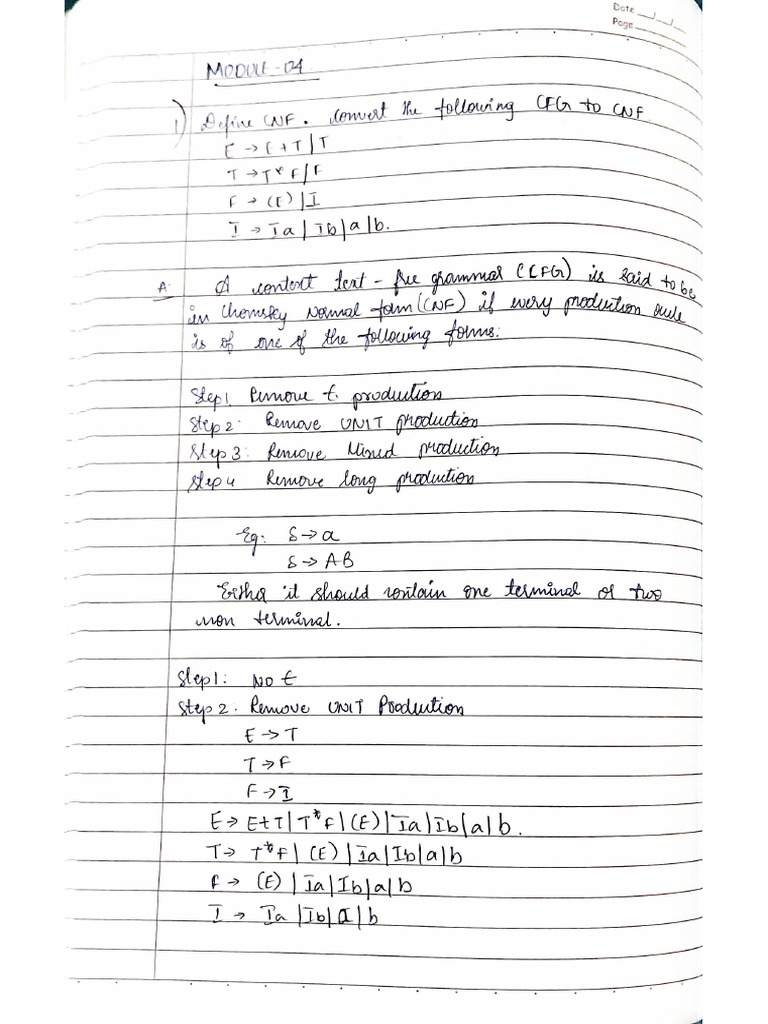 Date __/__/__
Page
MODULE-04
1) Define CNF. Convert the following CFG to CNF
E → E+T|T
T → T* F/F
F → (E)|I
I → Ia | Ib | a | b.
A: A context text-free grammar (CFG) is said to be
in Chomsky Normal form (CNF) if every production rule
is of one of the following forms:
Step1. Remove ε. production
Step 2: Remove UNIT production
Step 3: Remove Mixed production
Step 4 Remove long production
Eg: S → a
S → AB
Either it should contain one terminal or two
non terminal.
Step1: NO ε
Step 2. Remove UNIT Production
E → T
T → F
F → I
E → E+T | T*F | (E) | Ia | Ib | a | b.
T → T*F | (E) | Ia | Ib | a | b
F → (E) | Ia | Ib | a | b
I → Ia | Ib | a | b